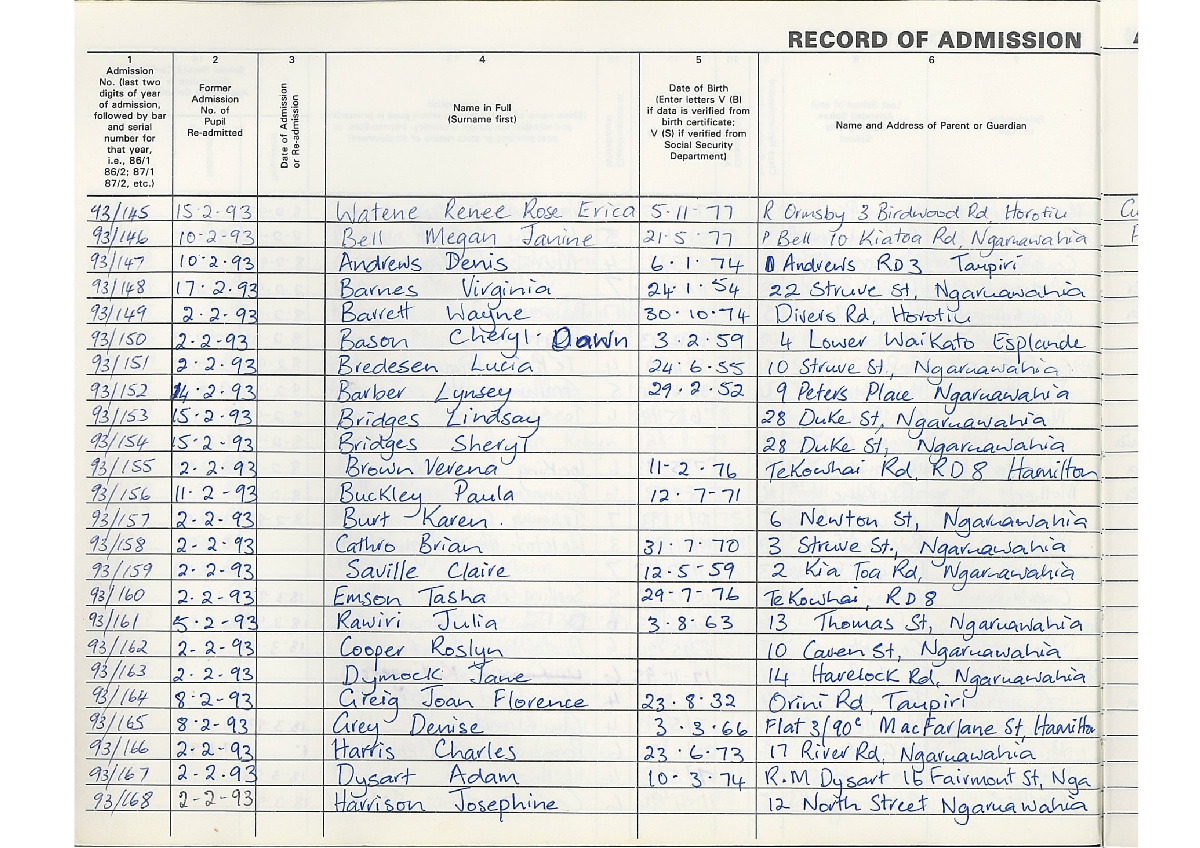 RECORD OF ADMISSION
1 2 3 4 5 6
Admission No. (last two digits of year of admission, followed by bar and serial number for that year, i.e., 86/1 86/2; 87/1 87/2, etc.)
Former Admission No. of Pupil Re-admitted
Date of Admission or Re-admission
Name in Full (Surname first)
Date of Birth (Enter letters V (B) if data is verified from birth certificate; V (S) if verified from Social Security Department)
Name and Address of Parent or Guardian
93/145 15·2·93 Watene Renee Rose Erica 5·11·77 R Ormsby 3 Birdwood Rd, Horotiu
93/146 10·2·93 Bell Megan Janine 21·5·77 P Bell 10 Kiatoa Rd, Ngaruawahia
93/147 10·2·93 Andrews Denis 6·1·74 D Andrews RD3 Taupiri
93/148 17·2·93 Barnes Virginia 24·1·54 22 Struve St, Ngaruawahia
93/149 2·2·93 Barrett Wayne 30·10·74 Divers Rd, Horotiu
93/150 2·2·93 Bason Cheryl Dawn 3·2·59 4 Lower Waikato Esplande
93/151 2·2·93 Bredesen Lucia 24·6·55 10 Struve St., Ngaruawahia
93/152 14·2·93 Barber Lynsey 29·2·52 9 Peters Place Ngaruawahia
93/153 15·2·93 Bridges Lindsay 28 Duke St, Ngaruawahia
93/154 15·2·93 Bridges Sheryl 28 Duke St, Ngaruawahia
93/155 2·2·93 Brown Verena 11-2·76 TeKowhai Rd, RD8 Hamilton
93/156 11·2-93 Buckley Paula 12·7-71
93/157 2-2-93 Burt Karen. 6 Newton St, Ngaruawahia
93/158 2-2·93 Cathro Brian 31·7·70 3 Struve St., Ngaruawahia
93/159 2·2·93 Saville Claire 12·5-59 2 Kia Toa Rd, Ngaruawahia
93/160 2·2-93 Emson Tasha 29-7-76 TeKowhai, RD8
93/161 5·2-93 Rawiri Julia 3·8·63 13 Thomas St, Ngaruawahia
93/162 2-2-93 Cooper Roslyn 10 Caven St, Ngaruawahia
93/163 2-2·93 Dymock Jane 14 Havelock Rd, Ngaruawahia
93/164 8·2-93 Greig Joan Florence 23·8·32 Orini Rd, Taupiri
93/165 8·2-93 Grey Denise 3·3·66 Flat 3/90c MacFarlane St, Hamilton
93/166 2-2-93 Harris Charles 23·6·73 17 River Rd, Ngaruawahia
93/167 2-2·93 Dysart Adam 10·3·74 R.M Dysart 16 Fairmont St, Nga
93/168 2-2-93 Harrison Josephine 12 North Street Ngaruawahia